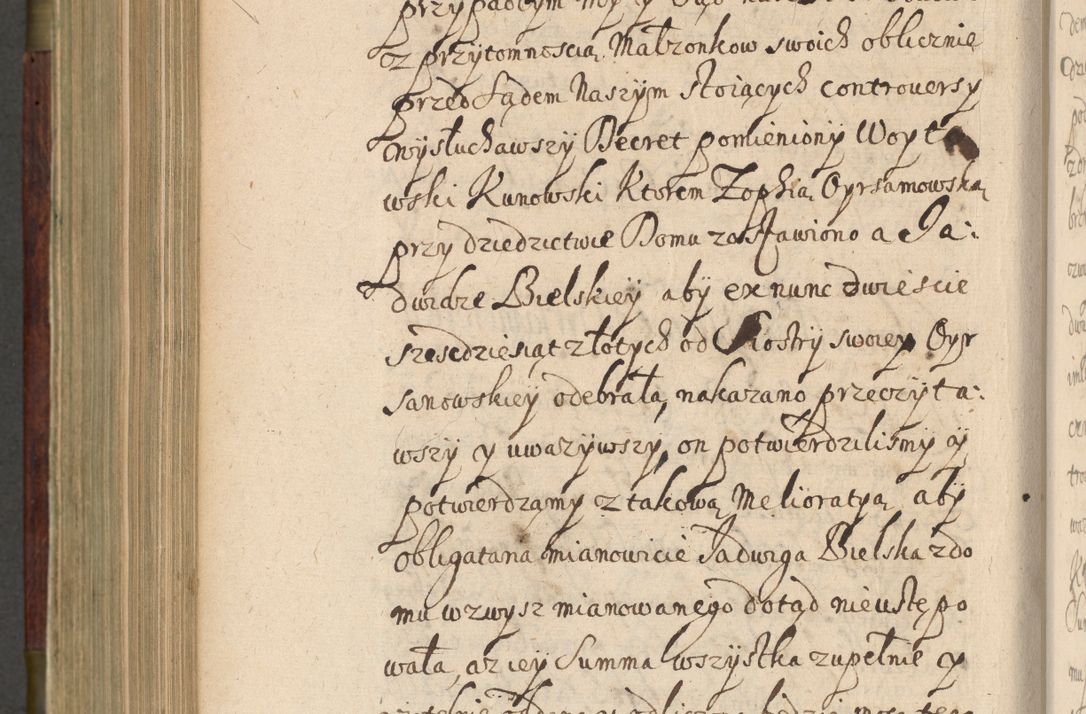 z przytomnoscią Małzonkow swoich oblicznie
przed Sądem Naszym stoiących controuersy
wysłuchawszy Decret pomieniony Woyto
wski Kunowski Ktorem Zophią Oyrsamowską
przy dziedzictwie Domu zostawiono a Ja:
dwidze Bielskiey aby ex nunc dwieście
szescdziesiąt złotych od Siostry swoiey Oyr
sanowskiey odebrała, nakazano przeczyta:
wszy y uwazywszy, on potwierdziliśmy y
potwierdzamy z takową Melioratyą, aby
obligatana mianowicie Jadwiga Bielska zdo
mu wzwysz mianowanego dotąd nieustępo
wała, az iey Summa wszystka zupełnie y